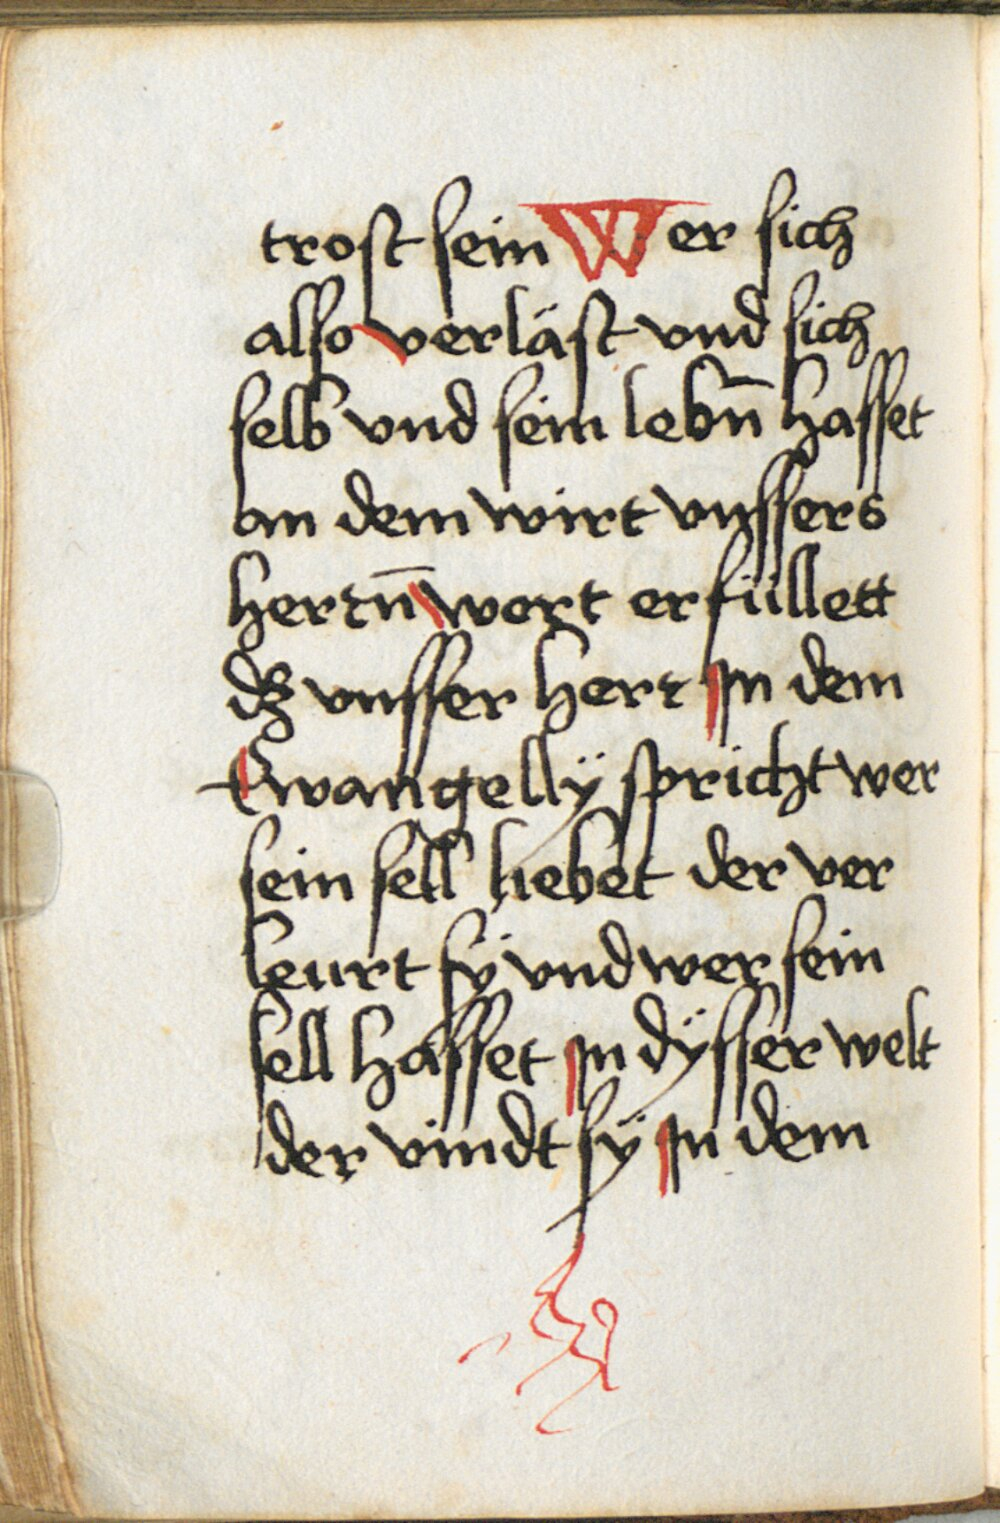 trost sein Wer sich
also verläst vnd sich
selb vnd sein lebn̄ hasset
an dem wirt vnssers
hertn̄ wort erfüllett
dz vnsser hert jn dem
Ewangellÿ spricht wer
sein sell liebet der ver
leurt sÿ vnd wer sein
sell hasset jn dÿsser welt
der vindt sÿ jn dem